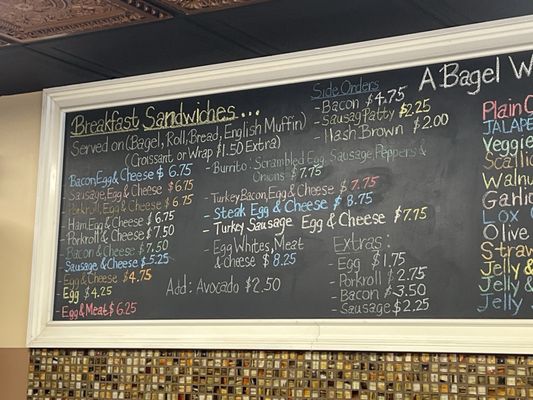 Breakfast Sandwiches...
Served on (Bagel, Roll, Bread, English Muffin)
(Croissant or Wrap $1.50 Extra)
Bacon, Egg & Cheese $ 6.75
Sausage, Egg & Cheese $ 6.75
Porkroll, Egg & Cheese $ 6.75
Ham, Egg & Cheese $ 6.75
Porkroll & Cheese $ 7.50
Bacon & Cheese $ 7.50
Sausage & Cheese $ 5.25
Egg & Cheese $ 4.75
Egg $ 4.25
- Egg & Meat $ 6.25
- Burrito: Scrambled Egg, Sausage, Peppers &
Onions $ 7.75
- Turkey Bacon, Egg & Cheese $ 7.75
- Steak Egg & Cheese $ 8.75
- Turkey Sausage Egg & Cheese $7.75
- Egg Whites, Meat
& cheese $ 8.25
Add: Avocado $2.50
Side Orders
- Bacon $ 4.75
- Sausag Patty $2.25
- Hash Brown $2.00
Extras:
- Egg $1.75
- Porkroll $2.75
- Bacon $3.50
- Sausage $2.25
A Bagel W
Plain C
JALAPE
Veggie
Scallio
Walnu
Garlic
Lox
Olive
Straw
Jelly &
Jelly &
Jelly &